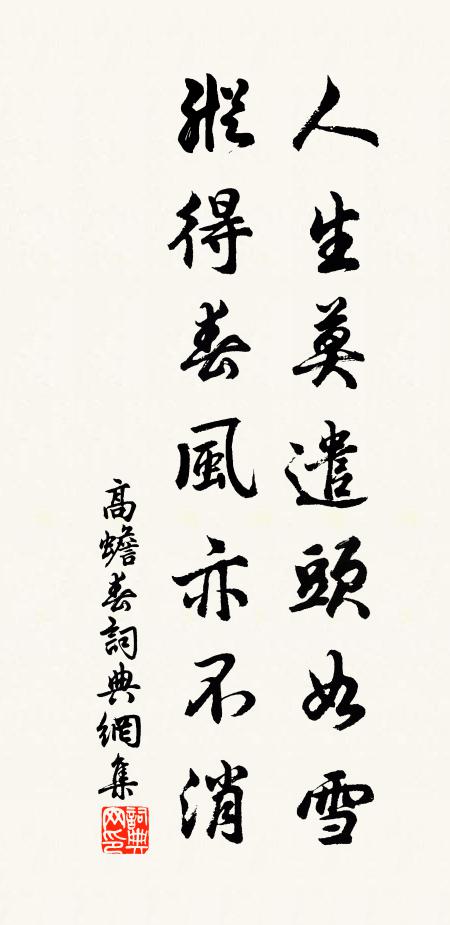 人生莫遣頭如雪
縱得春風亦不消
高蟾春詞典網集
詞典網印